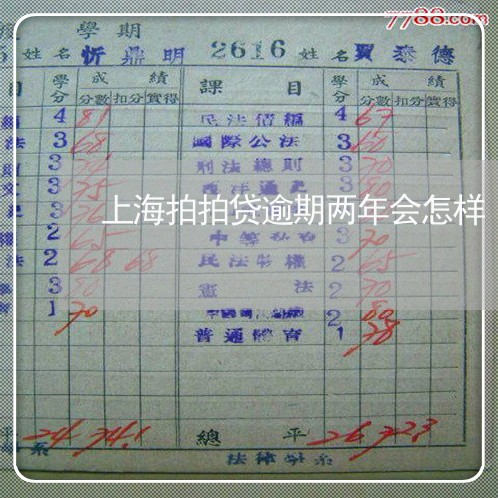 7788.com
學期
姓名 忻鼎明 2616 姓名 賈泰德
目 學分 成績 課目 學分 成績
分數 扣分 實得 分數 扣分 實得
4 81 民法債編 4 67
法 3 68 國際公法 3 60
3 刑法總則 3 70
3 75 西洋通史 3 80
上海拍拍贷逾期两年会怎样
2 65 3 70
法 2 68 68 民法物權 2 65
3 80 憲法 2 70
1 70 2 80
普通體育 1 78
平 24 74.1 總平 26 72.3
系 法律學系